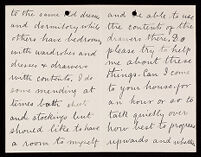 to the same old dreary
and dormitory while
others have bedrooms
with wardrobes and
dresses & drawers
with contents, I do
some mending at
times both shirt
and stockings but
should like to have
a room to myself
and be able to use
the contents of the
drawers there, Do
please try to help
me about these
things. Can I come
to your house for
an hour or so to
talk quietly over
how best to progress
upwards and whether